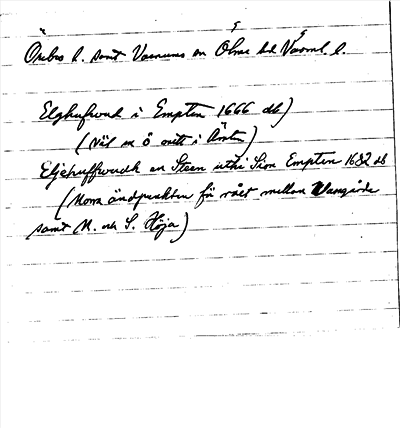 Örebro l. samt Varnums en Ölme hd Värml. l.
Elghufwud i Empten 1666 db)
(Väl en ö mitt i Ämten)
Eljehuffwudh en Steen uthi Sion Empten 1682 db
(Norra ändpunkten för rået mellan Wangärde
samt N. och S. Höja)